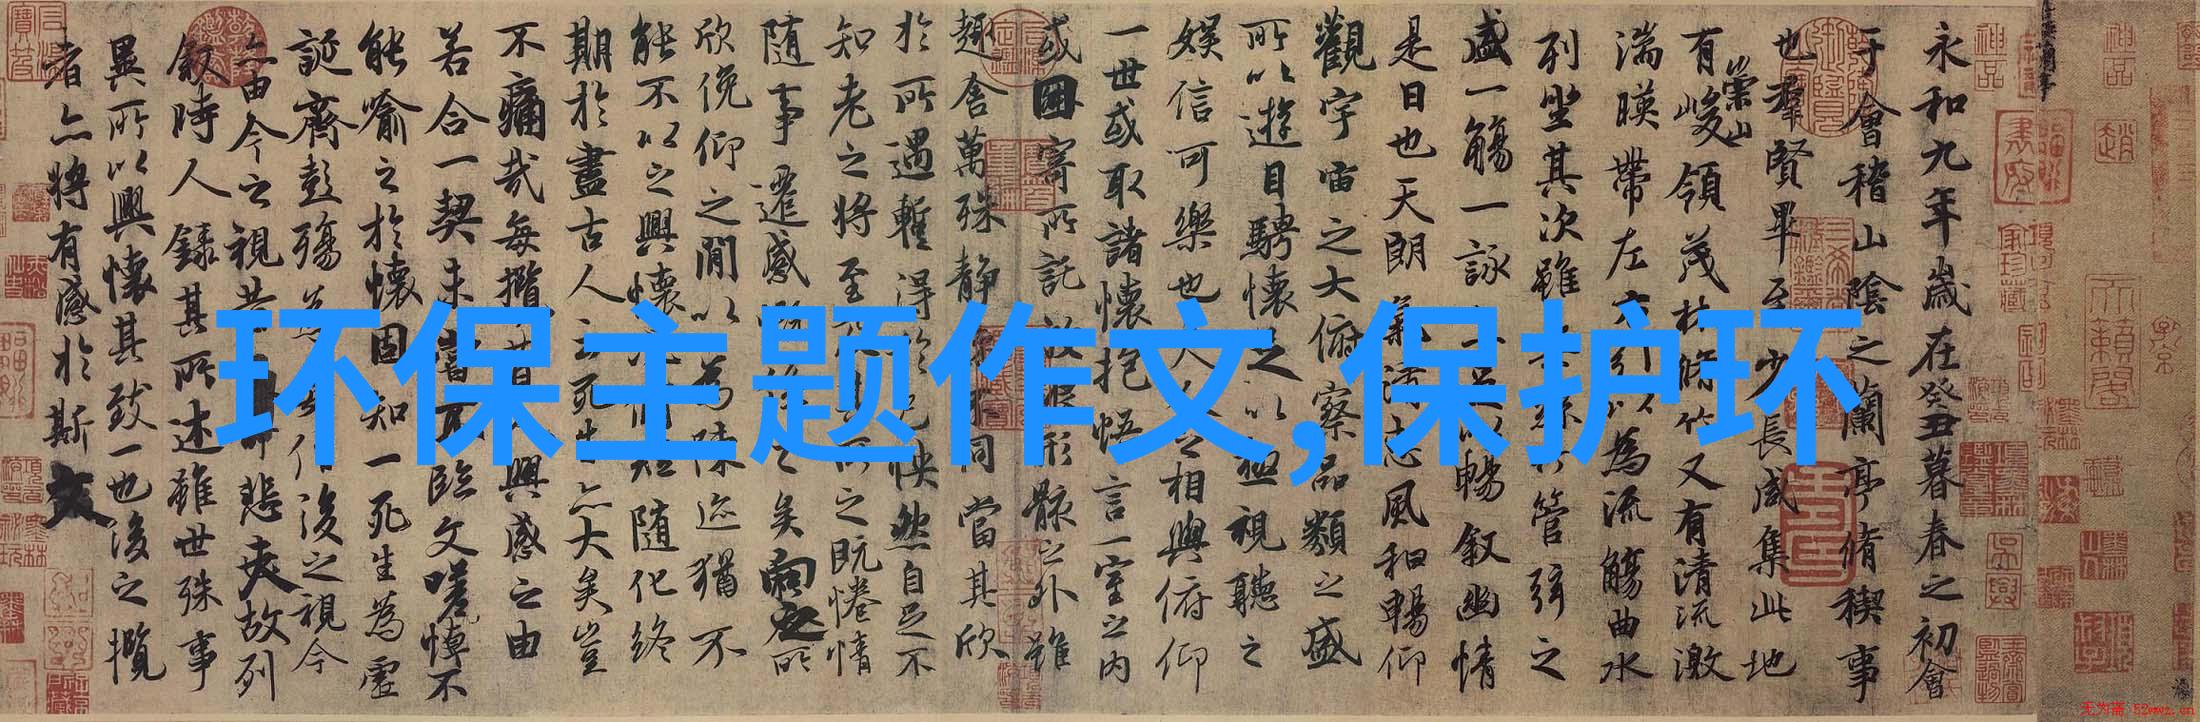 环保主题作文,保护环
永和九年歲在癸丑暮春之初會
于會稽山陰之蘭亭脩稧事
也群賢畢至少長咸集此地
有崇山峻領茂林脩竹又有清流激
湍暎帶左右引以為流觴曲水
列坐其次雖無絲竹管弦之
盛一觴一詠亦足以暢敘幽情
是日也天朗氣清惠風和暢仰
觀宇宙之大俯察品類之盛
所以遊目騁懷足以極視聽之
娛信可樂也夫人之相與俯仰
一世或取諸懷抱悟言一室之內
或因寄所託放浪形骸之外雖
趣舍萬殊靜躁不同當其欣
於所遇暫得於己怏然自足不
知老之將至及其所之既惓情
隨事遷感慨係之矣向之所
欣俛仰之閒以為陳迹猶不
能不以之興懷況脩短隨化終
期於盡古人云死生亦大矣豈
不痛哉每攬昔人興感之由
若合一契未嘗不臨文嗟悼不
能喻之於懷固知一死生為虛
誕齊彭殤為妄作後之視今
亦由今之視昔悲夫故列
敘時人錄其所述雖世殊事
異所以興懷其致一也後之攬
者亦將有感於斯文
神品